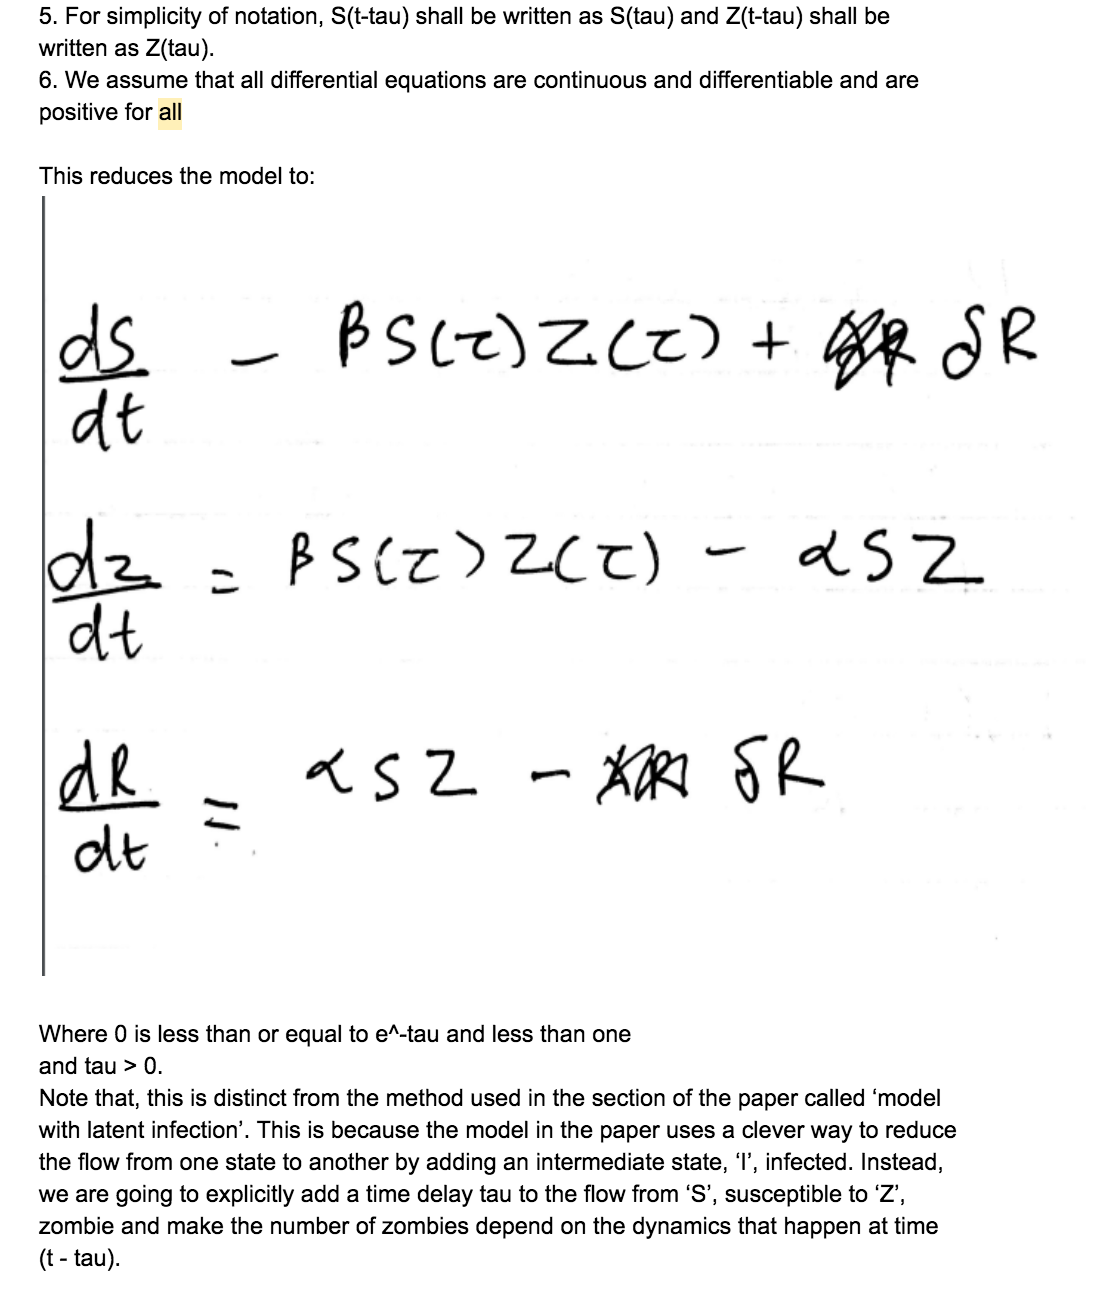 5. For simplicity of notation, S(t-tau) shall be written as S(tau) and Z(t-tau) shall be
written as Z(tau).
6. We assume that all differential equations are continuous and differentiable and are
positive for all
This reduces the model to:
dS/dt - βS(τ)Z(τ) + δR
dz/dt = βS(τ)Z(τ) - αSZ
dR/dt = αSZ - δR
Where 0 is less than or equal to e^-tau and less than one
and tau > 0.
Note that, this is distinct from the method used in the section of the paper called ‘model
with latent infection’. This is because the model in the paper uses a clever way to reduce
the flow from one state to another by adding an intermediate state, ‘I’, infected. Instead,
we are going to explicitly add a time delay tau to the flow from ‘S’, susceptible to ‘Z’,
zombie and make the number of zombies depend on the dynamics that happen at time
(t - tau).